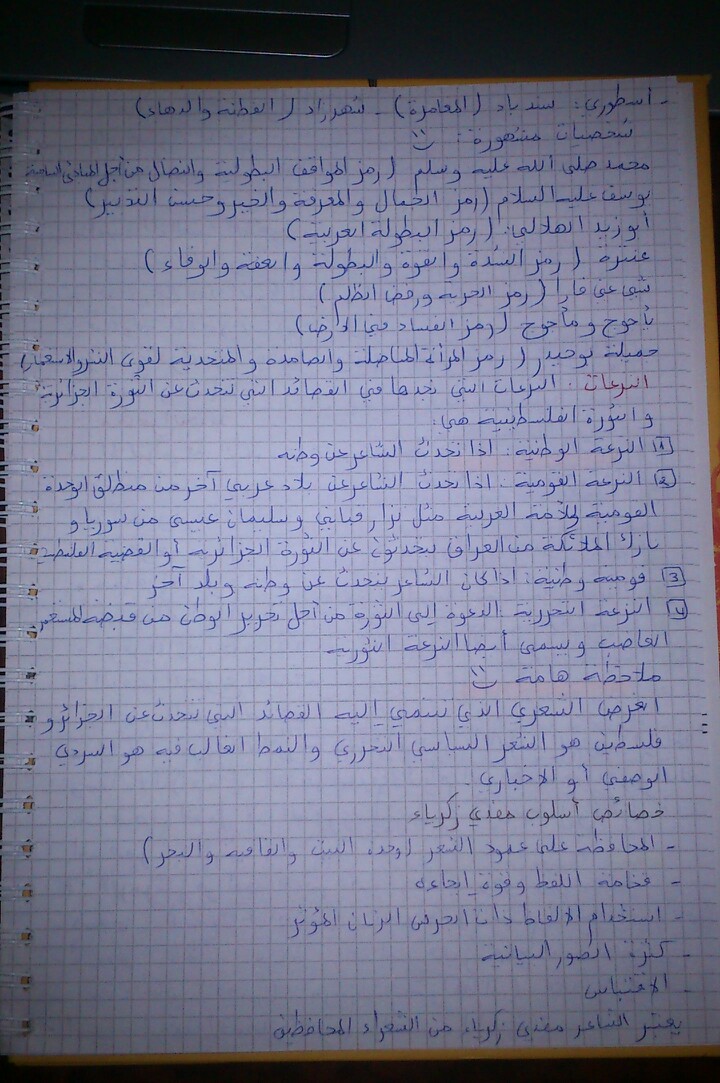 - أسطوري: سندباد (المغامرة) - شهرزاد (الفطنة والدهاء)
شخصيات مشهورة:
محمد صلى الله عليه وسلم (رمز المواقف البطولية والنضال من أجل المبادئ السامية
يوسف عليه السلام (رمز الجمال والمعرفة والخير وحسن التدبير)
أبو زيد الهلالي: (رمز البطولة العربية)
عنترة (رمز الشدة والقوة والبطولة والعفة والوفاء)
شي غي فارا (رمز الحرية ورفض الظلم)
يأجوج ومأجوج (رمز الفساد في الأرض)
جميلة بوحيدر (رمز المرأة المناضلة والصامدة والمتحدية لقوى الشر والاستعمار)
النزعات: النزعات التي نجدها في القصائد التي تتحدث عن الثورة الجزائرية
والثورة الفلسطينية هي:
1 النزعة الوطنية: اذا تحدث الشاعر عن وطنه
2 النزعة القومية: اذا تحدث الشاعر عن بلاد عربي آخر من منطلق الوحدة
القومية للأمة العربية مثل نزار قباني وسليمان عيسى من سوريا و
نازك الملائكة من العراق يتحدثون عن الثورة الجزائرية أو القضية الفلسطينية
3 قومية وطنية: اذا كان الشاعر يتحدث عن وطنه وبلد آخر
4 النزعة التحررية الدعوة إلى الثورة من أجل تحرير الوطن من قبضة المستعمر
الغاصب ويسمى أيضا النزعة الثورية
ملاحظة هامة
الغرض الشعري الذي تنتمي إليه القصائد التي تتحدث عن الجزائر و
فلسطين هو الشعر السياسي التحرري والنمط الغالب فيه هو السردي
الوصفي أو الاخباري
خصائص أسلوب مفدي زكرياء
- المحافظة على عمود الشعر (وحدة البيت والقافية والبحر)
- فخامة اللفظ وقوة ايحاءه
- استخدام الالفاظ ذات الجرس الرنان المؤثر
- كثرة الصور البيانية
- الاقتباس
يعتبر الشاعر مفدي زكرياء من الشعراء المحافظين